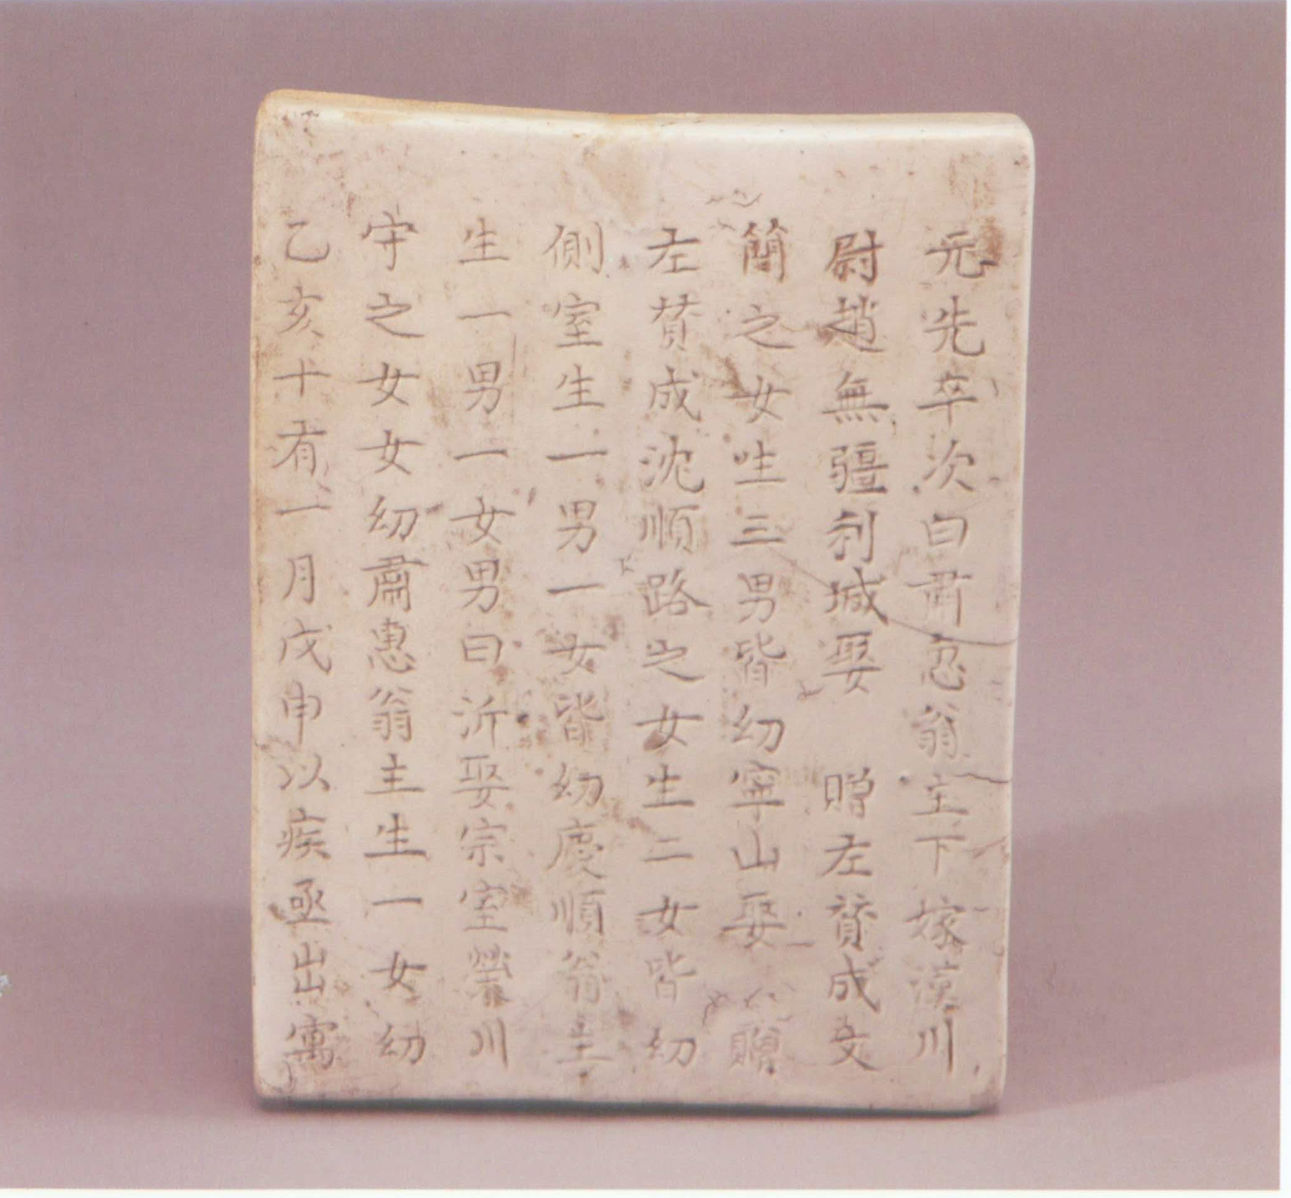 元先卒次曰肅忍翁主下嫁漢川
尉趙無疆利城娶 贈左贊成文
簡之女生三男皆幼寧山娶 贈
左贊成沈順路之女生二女皆幼
側室生一男一女皆幼慶順翁主
生一男一女男曰沂娶宗室榮川
守之女女幼肅惠翁主生一女幼
乙亥十有一月戊申以疾亟出寓